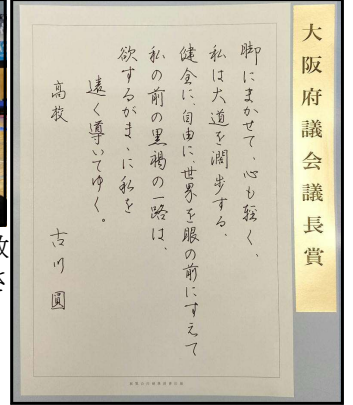 大阪府議会議長賞
脚にまかせて、心も軽く、
私は大道を濶歩する、
健全に、自由に、世界を眼の前にすえて
私の前の黒褐の一路は、
欲するがまゝに私を
遠く導いてゆく。
高教
古川 圓